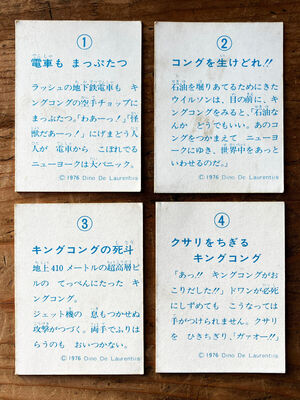 1
電車も まっぷたつ
ラッシュの地下鉄電車も キ
ングコングの空手チョップに
まっぷたつ。「わあーっ!」「怪
獣だあーっ!」にげまどう人
人が 電車から こぼれでる
ニューヨークは大パニック。
©1976 Dino De Laurentiis
2
コングを生けどれ!!
石油を堀りあてるためにきた
ウイルソンは、目の前に、キ
ングコングをみると、「石油な
んか どうでもいい。あのコ
ングをつかまえて ニューヨ
ークにゆき、世界中をあっと
いわせるのだ。」
©1976 Dino De Laurentiis
3
キングコングの死斗
地上410メートルの超高層ビ
ルの てっぺんにたった キ
ングコング。
ジェット機の 息もつかせぬ
攻撃がつづく。両手でふりは
らうのも おいつかない。
©1976 Dino De Laurentiis
4
クサリをちぎる
キングコング
「あっ!! キングコングがお
こりだした!!」ドワンが必死
にしずめても こうなっては
手がつけられません。クサリ
を ひきちぎり、「ガァオー!!」
©1976 Dino De Laurentiis